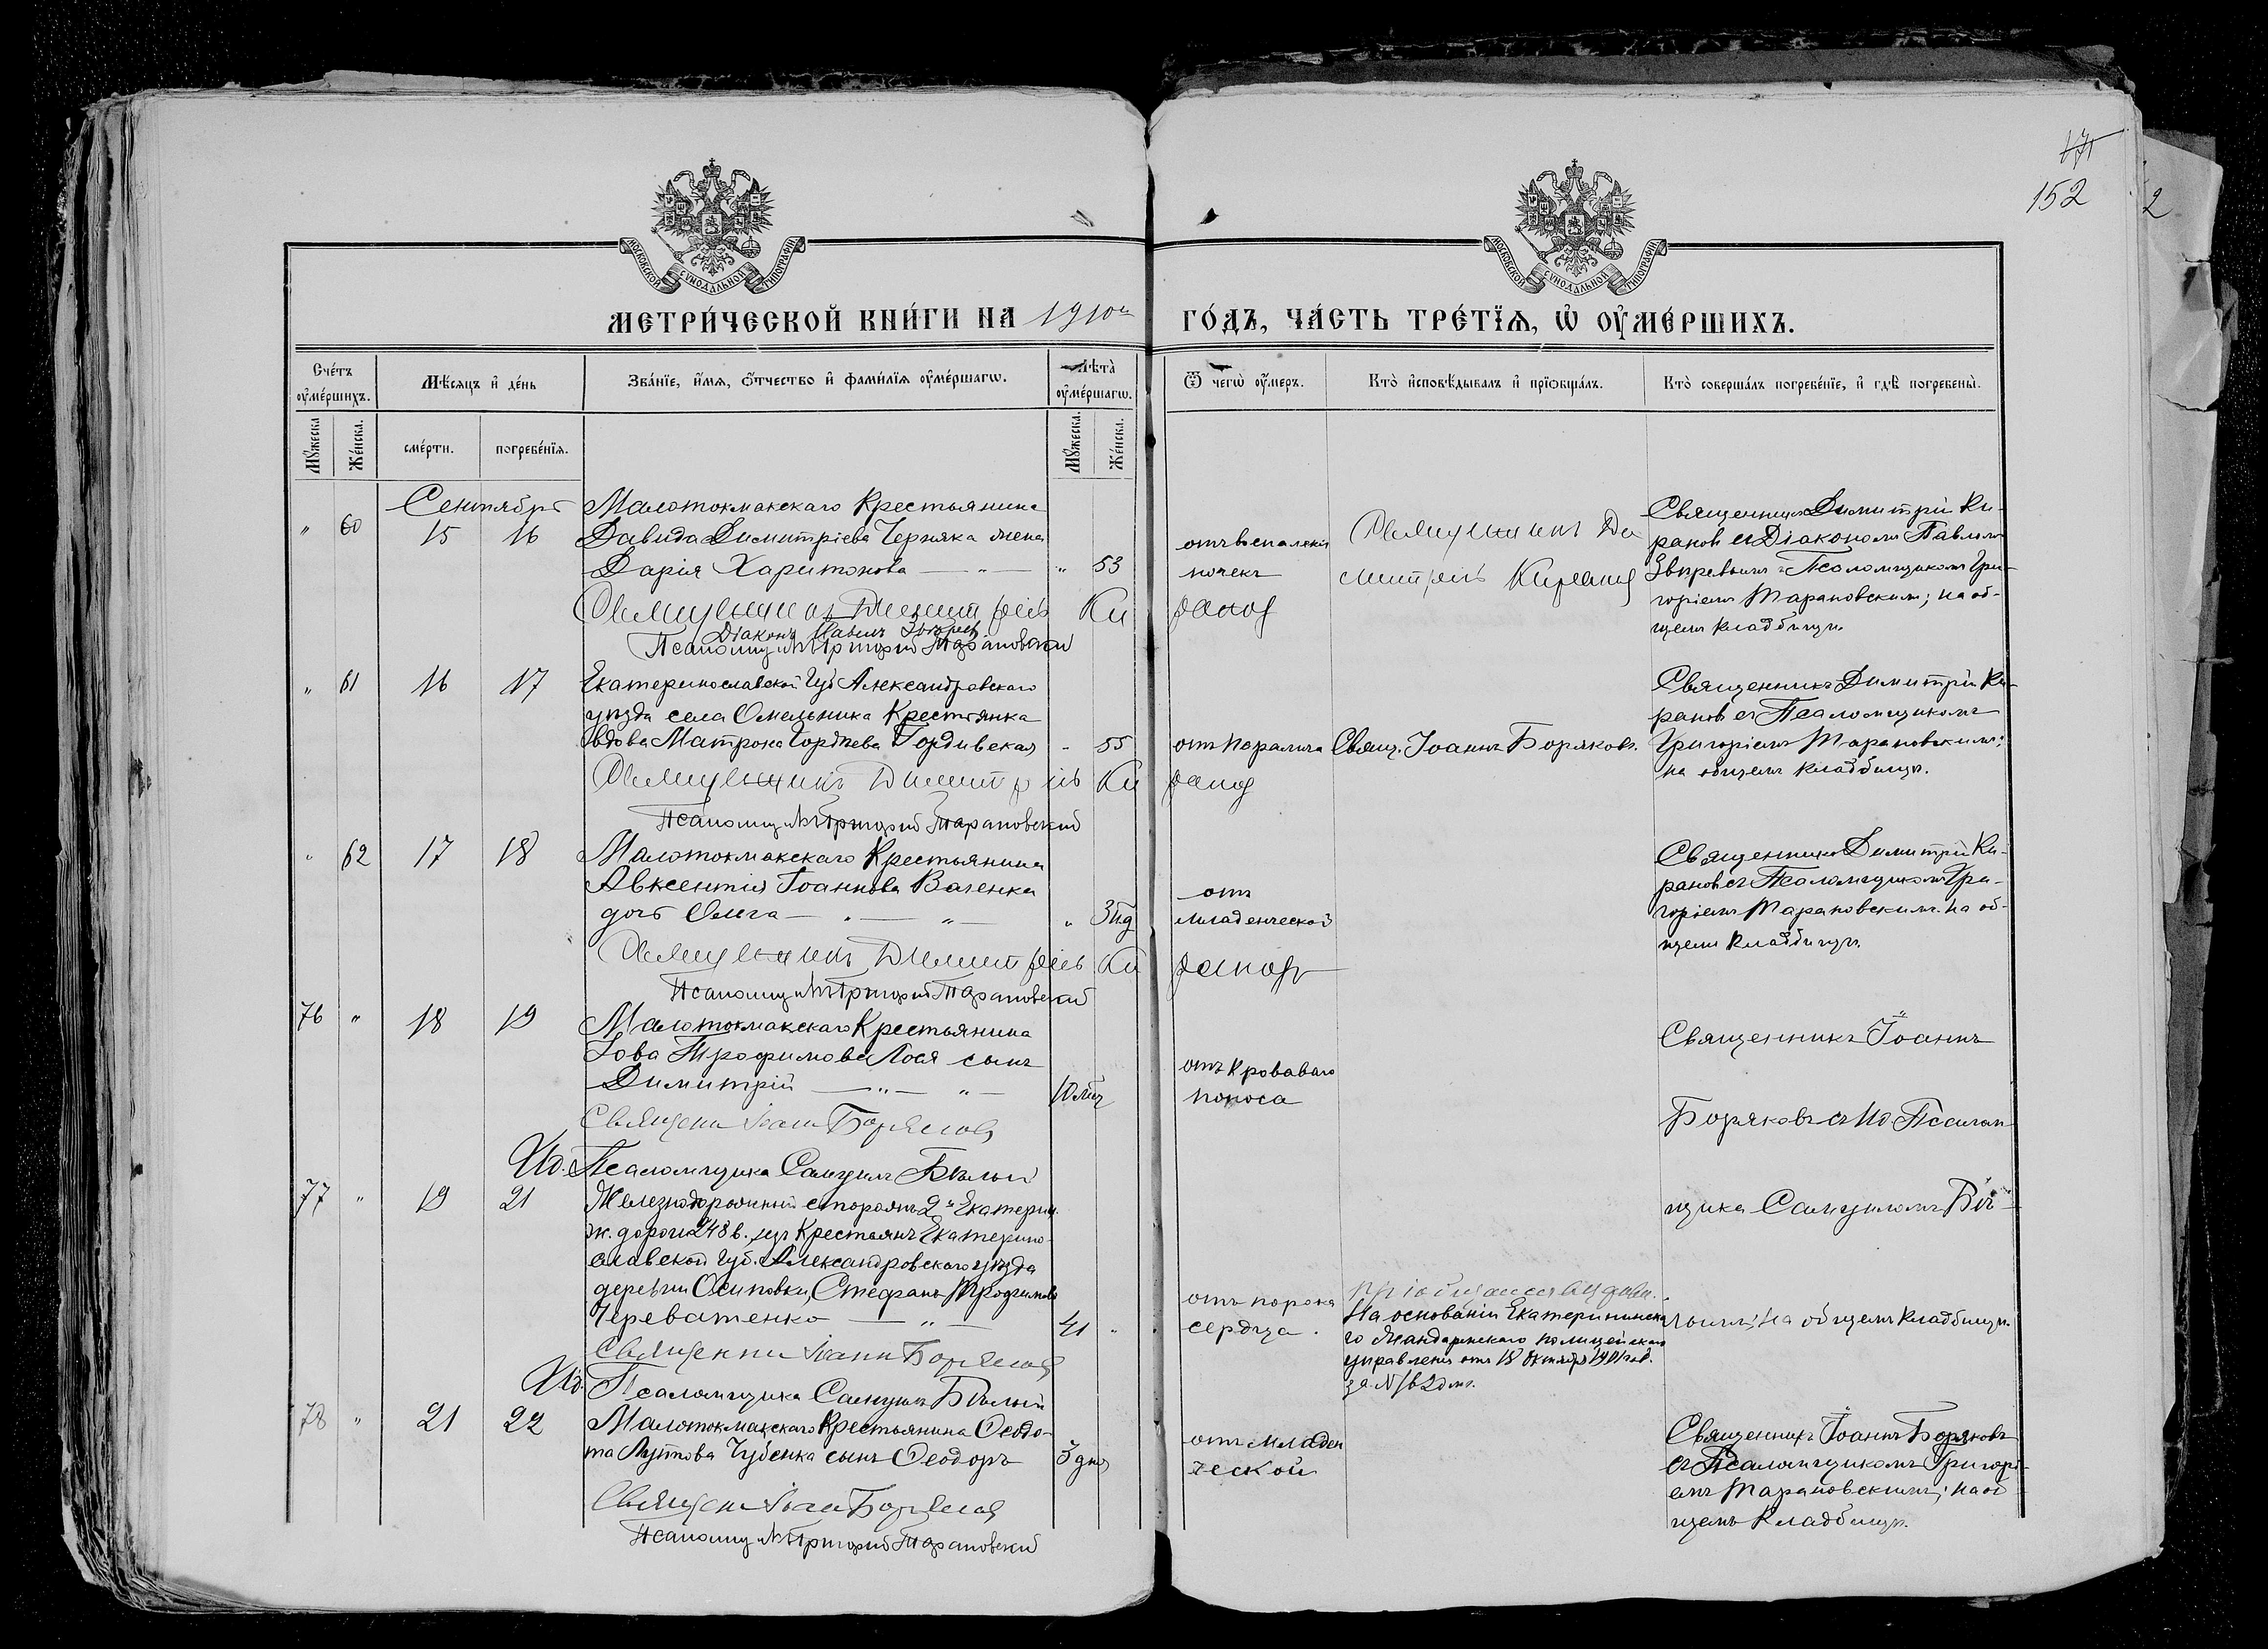 171
152
2
МОСКОВСКОЙ СУНОДАЛЬНОЙ ТИПОГРАФІИ
МОСКОВСКОЙ СУНОДАЛЬНОЙ ТИПОГРАФІИ
МЕТРИ́ЧЕСКОЙ КНИ́ГИ НА 1910й
ГО́ДЪ, ЧА́СТЬ ТРЕ́ТЇѦ, Ѡ҆ ОУ҆МЕ́РШИХЪ.
Счéтъ оу҆ме́ршихъ.
Мѣ́сѧцъ и҆ де́нь
Зва́нїе, и҆́мѧ, ѻ҆́тчество и҆ фами́лїѧ оу҆ме́ршагѡ.
Лѣта̀ оу҆ме́ршагѡ.
Ѿ чегѡ̀ оу҆́меръ.
Кто̀ и҆сповѣ́дывалъ и҆ прїѡбща́лъ.
Кто̀ соверша́лъ погребе́нїе, и҆ гдѣ̀ погребены̀.
Мꙋ́жеска.
Же́нска.
сме́рти.
погребе́нїѧ.
Мꙋ́жеска.
Же́нска.
Сентябрь
" 60 15 16
Малотокмакскаго Крестьянина
Давида Димитріева Черняка жена
Дарія Харитонова " 53
отъ воспаленія
почекъ
Священникъ Ди
митрій Киранов
Священникъ Димитрій Ки-
рановъ съ Діакономъ Павломъ
Звѣревымъ и Псаломщикомъ Гри-
горіемъ Тарановскимъ; на об-
щемъ кладбищѣ.
Священникъ Димитрій Киранов
Діаконъ Павелъ Звѣревъ
Псаломщикъ Григорій Тарановский
" 61 16 17
Екатеринославской Губ. Александровскаго
уѣзда села Омельника Крестьянка
вдова Матрона Гордѣева Гордивская - 55
отъ паралича
Свящ. Іоаннъ Боряковъ.
Священникъ Димитрій Ки-
рановъ съ Псаломщикомъ
Григоріемъ Тарановскимъ;
на общемъ кладбищѣ.
Священникъ Димитрій Киранов
Псаломщикъ Григорій Тарановский
" 62 17 18
Малотокмакскаго Крестьянина
Авксентія Іоаннова Ваченка
дочь Олга "
отъ
младенческой
Священникъ Димитрій Ки-
рановъ съ Псаломщикомъ Гри-
горіемъ Тарановскимъ. на об-
щемъ кладбищѣ.
Священникъ Димитрій Киранов
Псаломщикъ Григорій Тарановский
76 " 18 19
Малотокмакскаго Крестьянина
Іова Трофимова Лося сынъ
Димитрій 10 мѣс
отъ кроваваго
поноса
Священникъ Іоаннъ
Боряковъ съ Ид. Псалом
щика Самуиломъ Бѣ-
лымъ; на общемъ кладбищѣ.
Священн Іоанн Боряков
Ид. Псаломщика Самуилъ Бѣлый
77 " 19 21
Железнодорожный сторожъ 2й Екатерин.
ж. дороги 248 в. изъ Крестьянъ Екатерино-
славской Губ. Александровскаго уѣзда
деревни Осиповки, Стефанъ Трофимовъ
Череватенко 41 "
отъ порока
сердца.
На основаніи Екатерининска
го Жандармскаго полицейскаго
управленія отъ 18 Октября
за №
Священник Іоанн Боряков
Ид. Псаломщика Самуилъ Бѣлый
78 " 21 22
Малотокмакскаго Крестьянина Ѳеодо-
та Чубенка сынъ Ѳеодоръ 3 дня
отъ младен
ческой
Священникъ Іоаннъ Боряковъ
съ Псаломщикомъ Григорі-
емъ Тарановскимъ; на об
щемъ кладбищѣ.
Священн Іоанн Боряков
Псаломщикъ Григорій Тарановский